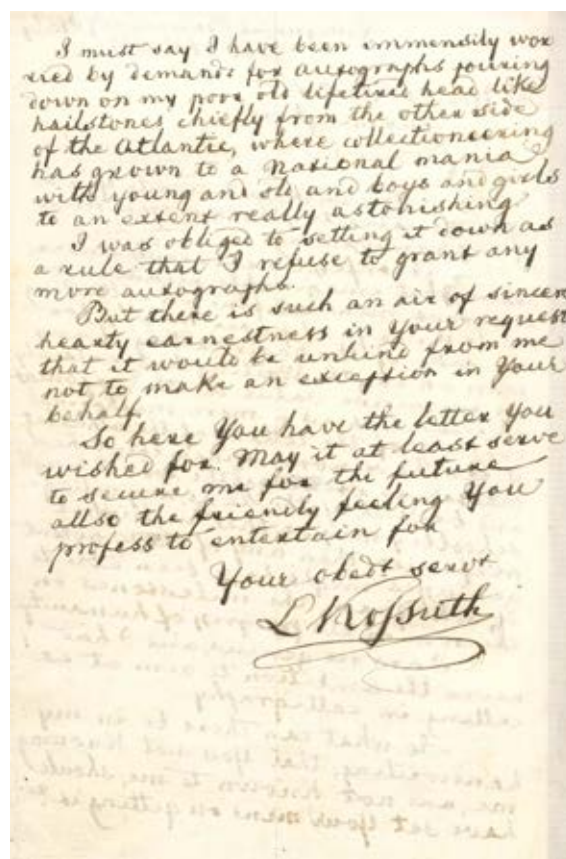 I must say I have been immensily wor
ried by demands for autographs pouring
down on my poor old lifetired head like
hailstones chiefly from the other side
of the Atlantic, where collectioneering
has grown to a National mania
with young and old and boys and girls
to an extent really astonishing
I was obliged to setting it down as
a rule that I refuse to grant any
more autographs.
But there is such an air of sincere
hearty earnestness in Your request
that it would be unkind from me
not to make an exception in Your
behalf.
So here You have the letter You
wished for. May it at least serve
to secure me for the future
allso the friendly feeling You
profess to entertain for
Your obedt servt
L Kossuth